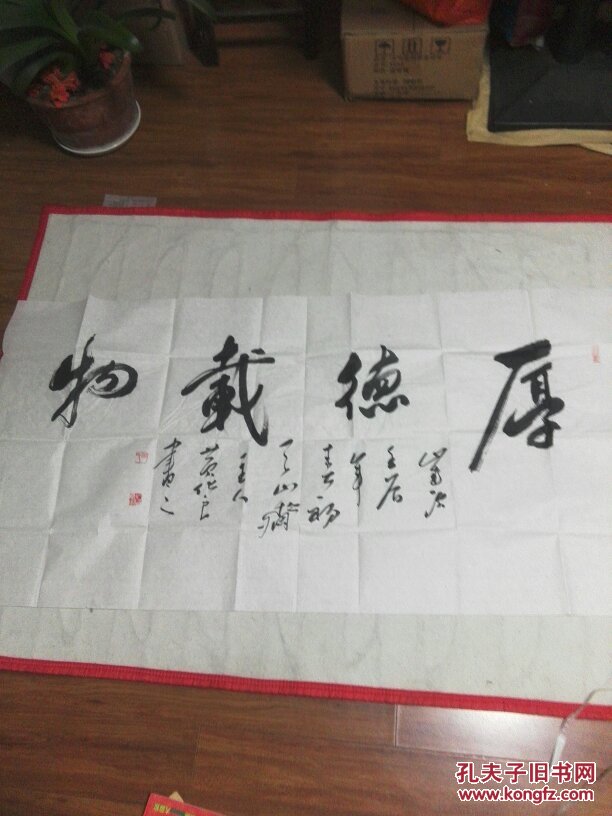 厚德載物
歲次
壬辰
年
春初
天山齋
主人
黄
書之
孔夫子旧书网
www.kongfz.com